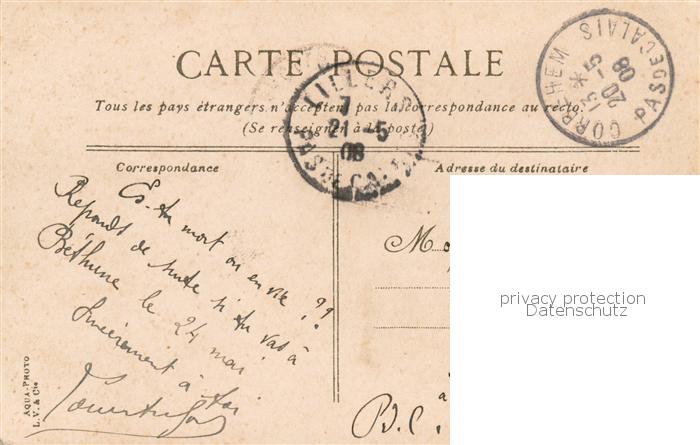 CARTE POSTALE
Tous les pays étrangers n'acceptent pas la correspondance au recto
(Se renseigner à la poste)
CORBEHEM PAS DE CALAIS
13 *
20 - 5
08
LILLERS PAS DE CALAIS
7
21 - 5
08
Correspondance
Adresse du destinataire
Es-tu mort ou en vie ??
Réponds de suite si tu vas à
Béthune le 24 mai
Sincèrement à toi
M
privacy protection
Datenschutz
à
P.d.C.
AQUA-PHOTO
L. V. & Cie